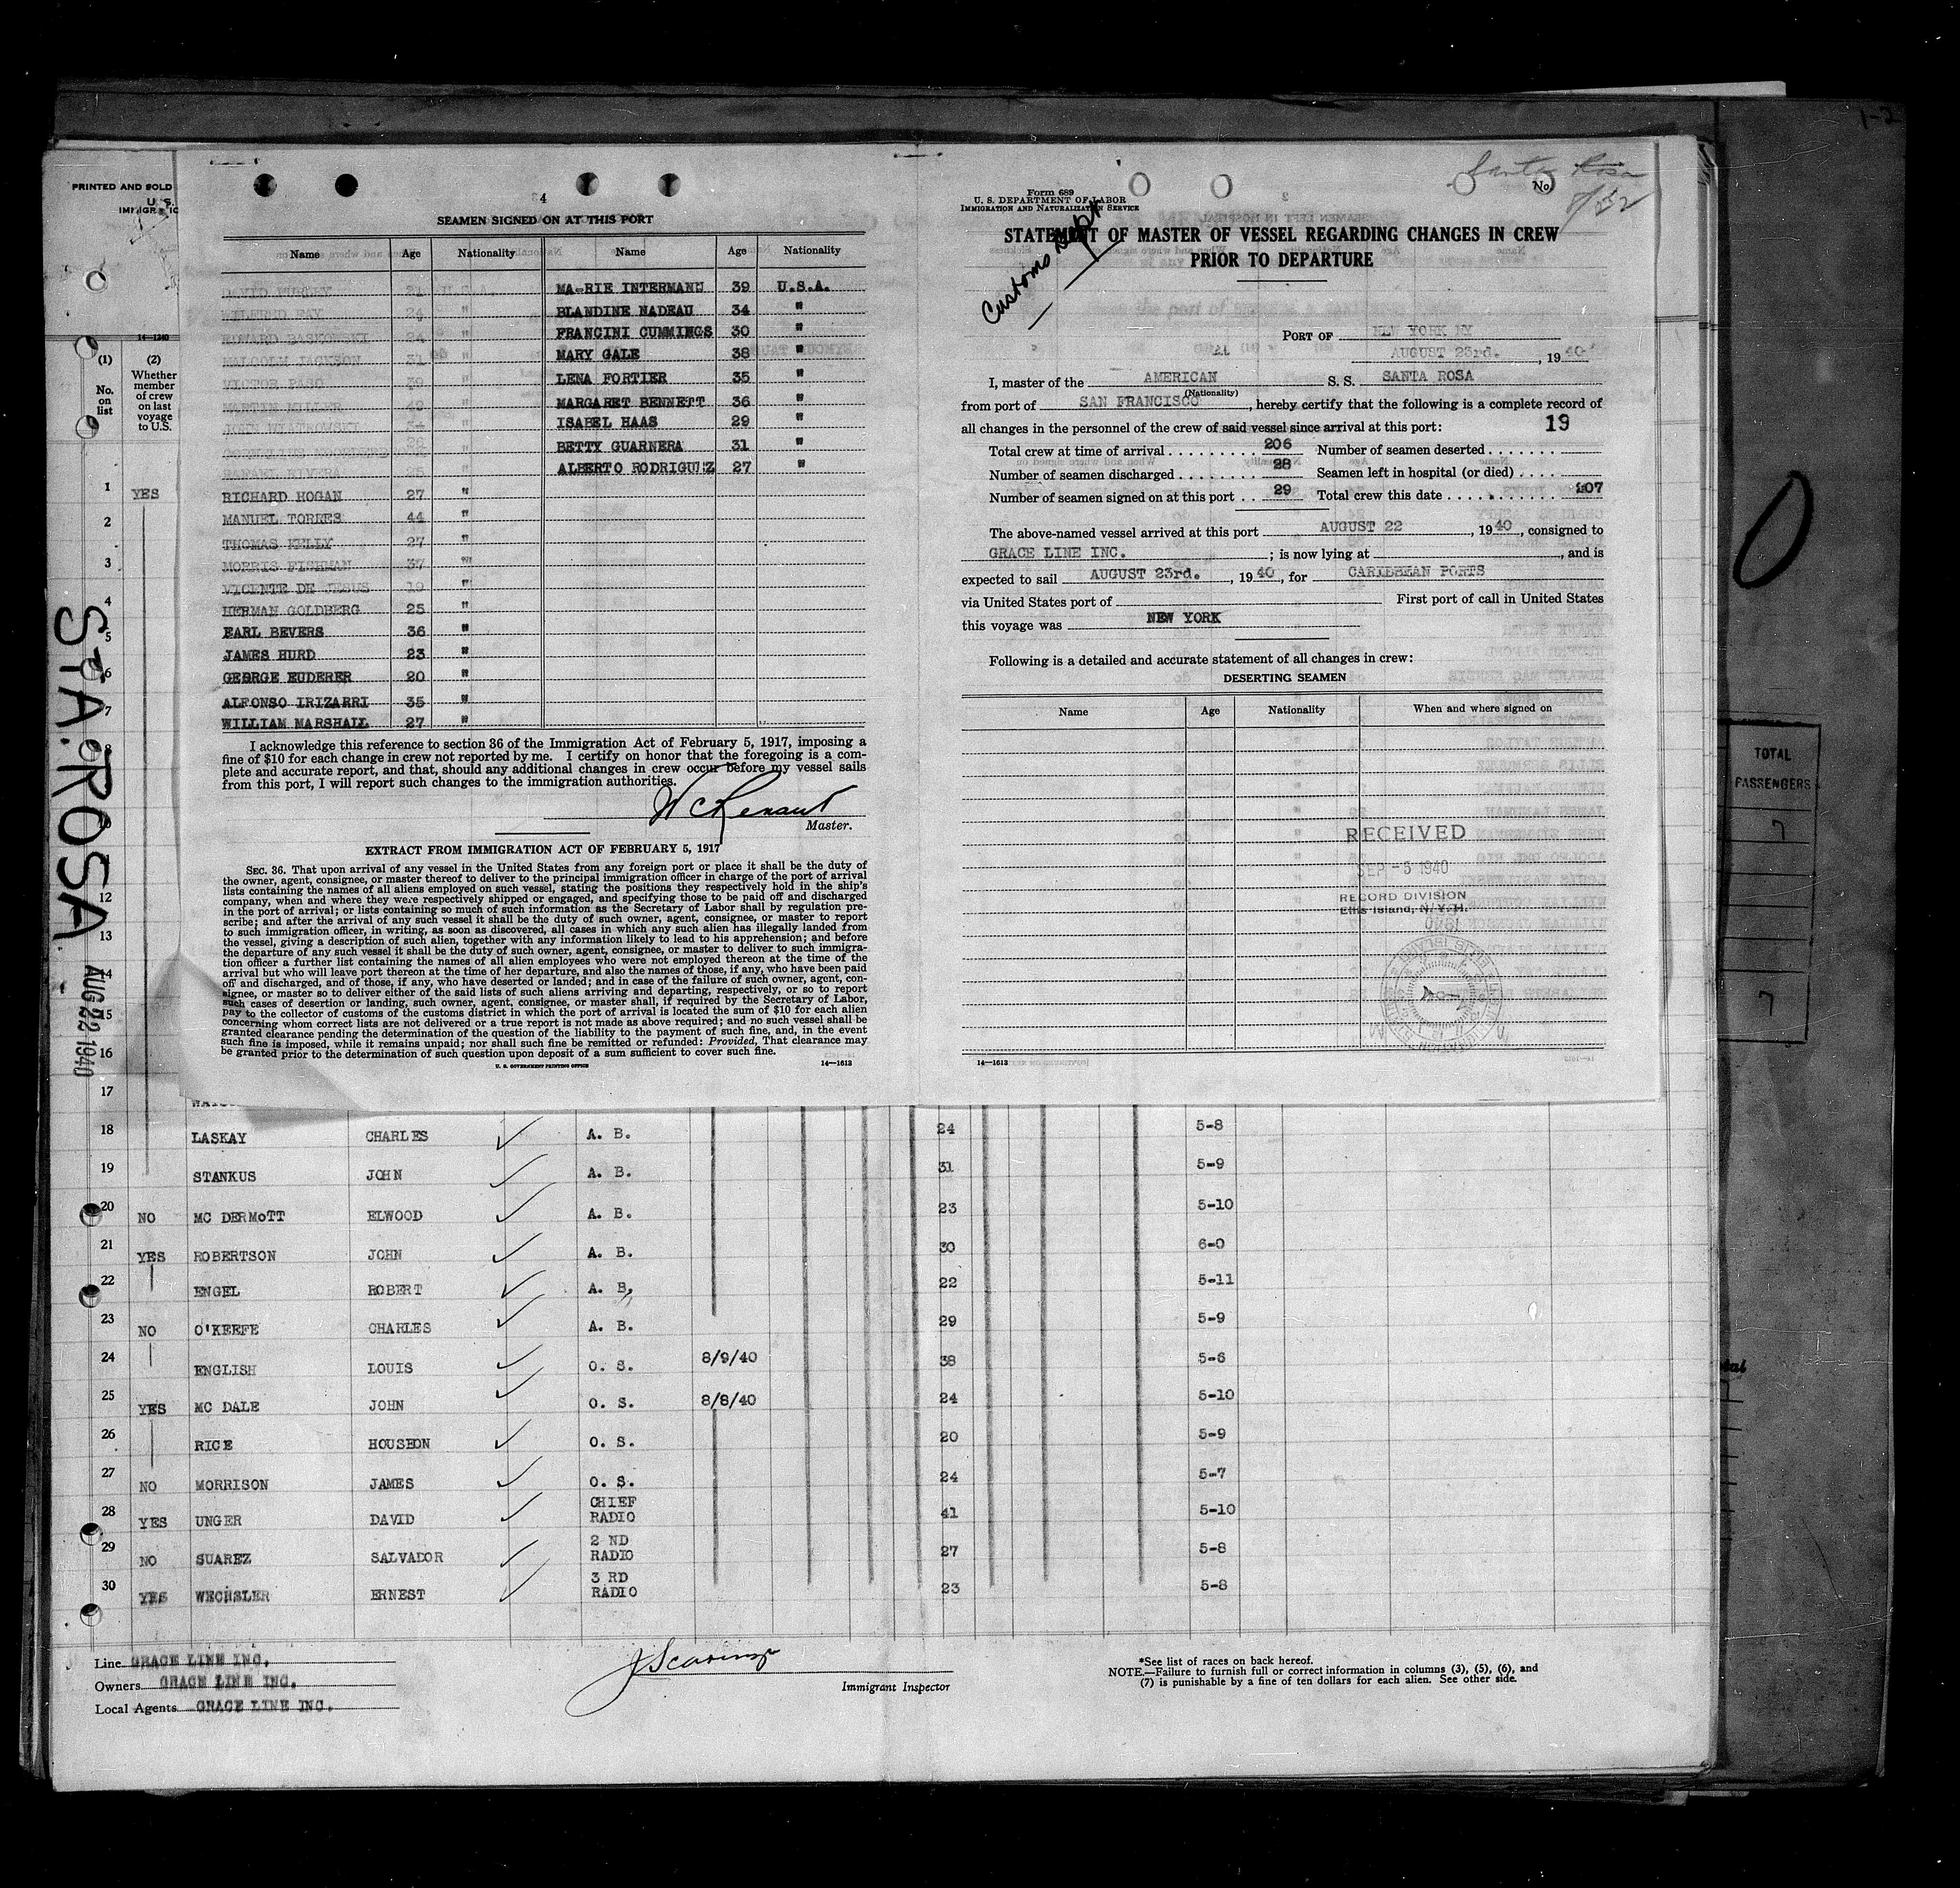 1-2
PRINTED AND SOLD
U. S.
IMMIGR IC
14-1240
(1)
No.
on
list
(2)
Whether
member
of crew
on last
voyage
to U.S.
STA. ROSA
AUG 22 1940
4
SEAMEN SIGNED ON AT THIS PORT
Name Age Nationality Name Age Nationality
21 U.S.A. MA-RIE INTERMANN 39 U.S.A.
WILFRED FAY 24 " BLANDINE NADEAU 34 "
" FRANCINI CUMMINGS 30 "
MALCOLM JACKSON 31 " MARY GALE 38 "
VICTOR PAGO 39 " LENA FORTIER 35 "
MARTIN MILLER 42 " MARGARET BENNETT 36 "
" ISABEL HAAS 29 "
28 " BETTY GUARNERA 31 "
RAFAEL RIVERA 25 " ALBERTO RODRIGUEZ 27 "
RICHARD HOGAN 27 "
MANUEL TORRES 44 "
THOMAS KELLY 27 "
MORRIS FISHMAN 37 "
VICENTE DE JESUS 19 "
HERMAN GOLDBERG 25 "
EARL BEVERS 36 "
JAMES HURD 23 "
GEORGE EUDERER 20 "
ALFONSO IRIZARRI 35 "
WILLIAM MARSHALL 27 "
I acknowledge this reference to section 36 of the Immigration Act of February 5, 1917, imposing a
fine of $10 for each change in crew not reported by me. I certify on honor that the foregoing is a com-
plete and accurate report, and that, should any additional changes in crew occur before my vessel sails
from this port, I will report such changes to the immigration authorities.
W C Renaut
Master.
EXTRACT FROM IMMIGRATION ACT OF FEBRUARY 5, 1917
SEC. 36. That upon arrival of any vessel in the United States from any foreign port or place it shall be the duty of
the owner, agent, consignee, or master thereof to deliver to the principal immigration officer in charge of the port of arrival
lists containing the names of all aliens employed on such vessel, stating the positions they respectively hold in the ship's
company, when and where they were respectively shipped or engaged, and specifying those to be paid off and discharged
in the port of arrival; or lists containing so much of such information as the Secretary of Labor shall by regulation pre-
scribe; and after the arrival of any such vessel it shall be the duty of such owner, agent, consignee, or master to report
to such immigration officer, in writing, as soon as discovered, all cases in which any such alien has illegally landed from
the vessel, giving a description of such alien, together with any information likely to lead to his apprehension; and before
the departure of any such vessel it shall be the duty of such owner, agent, consignee, or master to deliver to such immigra-
tion officer a further list containing the names of all alien employees who were not employed thereon at the time of the
arrival but who will leave port thereon at the time of her departure, and also the names of those, if any, who have been paid
off and discharged, and of those, if any, who have deserted or landed; and in case of the failure of such owner, agent, con-
signee, or master so to deliver either of the said lists of such aliens arriving and departing, respectively, or so to report
such cases of desertion or landing, such owner, agent, consignee, or master shall, if required by the Secretary of Labor,
pay to the collector of customs of the customs district in which the port of arrival is located the sum of $10 for each alien
concerning whom correct lists are not delivered or a true report is not made as above required; and no such vessel shall be
granted clearance pending the determination of the question of the liability to the payment of such fine, and, in the event
such fine is imposed, while it remains unpaid; nor shall such fine be remitted or refunded: Provided, That clearance may
be granted prior to the determination of such question upon deposit of a sum sufficient to cover such fine.
U. S. GOVERNMENT PRINTING OFFICE 14-1613
Form 689
U. S. DEPARTMENT OF LABOR
IMMIGRATION AND NATURALIZATION SERVICE
No.
Santa Rosa
Customs Dept
STATEMENT OF MASTER OF VESSEL REGARDING CHANGES IN CREW
PRIOR TO DEPARTURE
PORT OF NEW YORK NY
AUGUST 23rd. , 1940
I, master of the AMERICAN S. S. SANTA ROSA
(Nationality)
from port of SAN FRANCISCO, hereby certify that the following is a complete record of
all changes in the personnel of the crew of said vessel since arrival at this port: 19
Total crew at time of arrival 206 Number of seamen deserted
Number of seamen discharged 28 Seamen left in hospital (or died)
Number of seamen signed on at this port 29 Total crew this date 207
The above-named vessel arrived at this port AUGUST 22, 1940, consigned to
GRACE LINE INC. ; is now lying at , and is
expected to sail AUGUST 23rd. , 1940, for CARIBBEAN PORTS
via United States port of First port of call in United States
this voyage was NEW YORK
Following is a detailed and accurate statement of all changes in crew:
DESERTING SEAMEN
Name Age Nationality When and where signed on
RECEIVED
SEP -5 1940
RECORD DIVISION
Ellis Island, N.Y.H.
14-1613
TOTAL
PASSENGERS
7
7
0
1 YES
2
3
4
5
6
7
8
10
12
13
14
15
16
17
18 LASKAY CHARLES A. B. 24 5-8
19 STANKUS JOHN A. B. 31 5-9
20 NO MC DERMOTT ELWOOD A. B. 23 5-10
21 YES ROBERTSON JOHN A. B. 30 6-0
22 ENGEL ROBERT A. B. 22 5-11
23 NO O'KEEFE CHARLES A. B. 29 5-9
24 ENGLISH LOUIS O. S. 8/9/40 38 5-6
25 YES MC DALE JOHN O. S. 8/8/40 24 5-10
26 RICE HOUSTON O. S. 20 5-9
27 NO MORRISON JAMES O. S. 24 5-7
28 YES UNGER DAVID CHIEF RADIO 41 5-10
29 NO SUAREZ SALVADOR 2 ND RADIO 27 5-8
30 YES WECHSLER ERNEST 3 RD RADIO 23 5-8
Line GRACE LINE INC.
Owners GRACE LINE INC.
Local Agents GRACE LINE INC.
Immigrant Inspector
*See list of races on back hereof.
NOTE.—Failure to furnish full or correct information in columns (3), (5), (6), and
(7) is punishable by a fine of ten dollars for each alien. See other side.